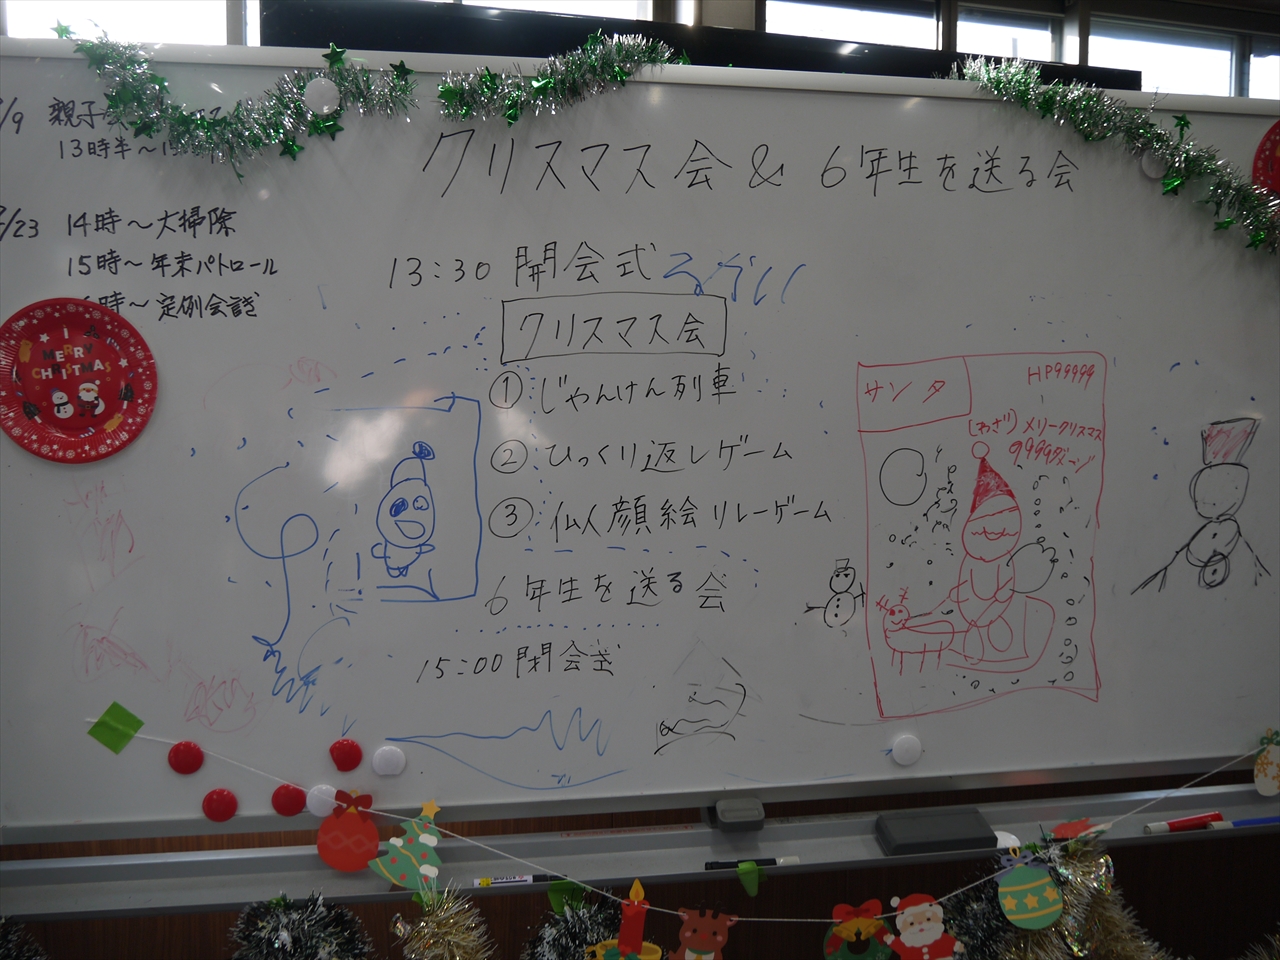 /9 親子
13時半～1
/23 14時～大掃除
15時～年末パトロール
時～定例会議
クリスマス会 & 6年生を送る会
13:30 開会式
クリスマス会
① じゃんけん列車
② ひっくり返しゲーム
③ 仏人顔絵リレーゲーム
6年生を送る会
15:00 閉会式
サンタ
HP99999
(わざ) メリークリスマス
9999ダメージ
I
MERRY
CHRISTMAS